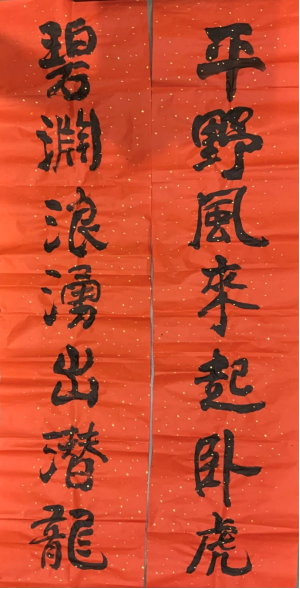 平野風來起卧虎
碧淵浪湧出潛龍